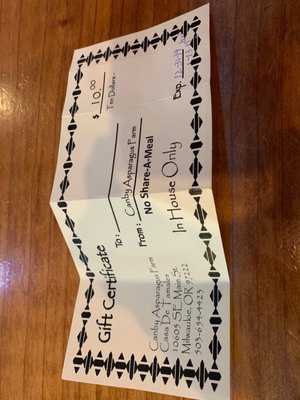 Gift Certificate
$ 10.00
Ten Dollars
To:
Canby Asparagus Farm
From:
No Share-A-Meal
Canby Asparagus Farm
Casa De Tamales
10605 SE Main St.
Milwaukie, OR 97222
503-654-4423
In House Only
Exp.